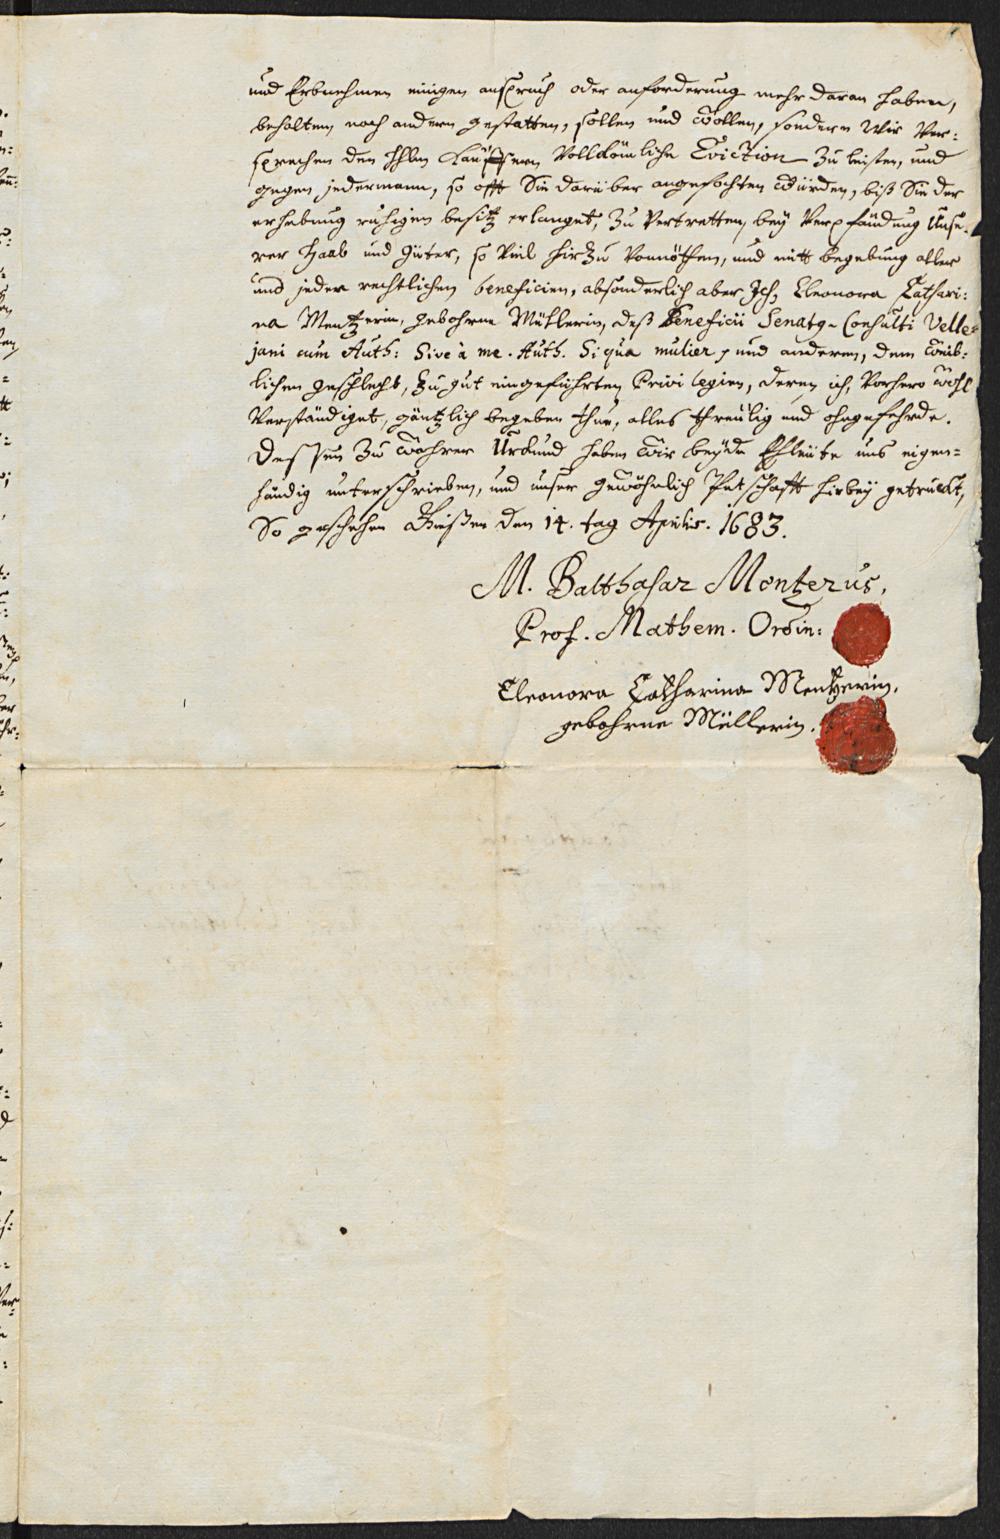 und Erbnehmen einigen anspruch oder anforderung mehr daran haben,
behalten, noch andern gestatten, sollen und wollen, sondern Wir Ver:
sprechen den Käuffern Vollkömliche Eviction zu leisten, und
gegen jedermann, so offt Sie darüber angefochten würden, biß Sie der
erhebung ruhigen besitz erlanget, zu Vertretten, bey Verpfändung Unse:
rer Haab und Güter, so Viel hirzu Vonnöthen, und mitt begebung aller
und jeder rechtlichen beneficien, absonderlich aber Ich, Eleonora Cathari:
na Mentzerin, gebohrne Müllerin, deß Beneficii Senatq. Consulti Velle:
jani cum Auth: Sive à me. Auth. Si qua mulier, und anderen, dem weib:
lichen geschlecht, zu gut eingeführten Privilegien, deren ich, Vorhero wohl
Verständiget, gäntzlich begeben thue, alles threulig und ohngefehrde.
Dessen zu wahrer Urkund haben wir beyde Ehleute uns eigen=
händig unterschrieben, und unser gewöhnlich Petschafft hirbey getruckt,
So geschehen Giesen den 14. tag Aprilis. 1683.
M. Balthasar Mentzerus,
Prof. Mathem. Ordin:
Eleonora Catharina Mentzerin,
gebohrne Müllerin.